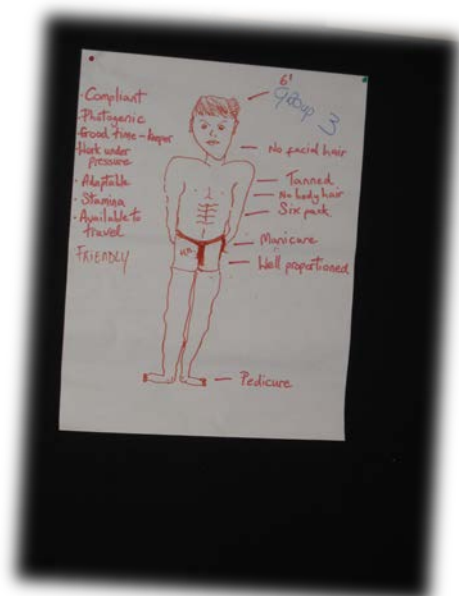 6'
Group 3
· Compliant
· Photogenic
Good time-keeper
· Work under
pressure
· Adaptable
· Stamina
· Available to
travel
FRIENDLY
No facial hair
Tanned
No body hair
Six pack
Manicure
Well proportioned
Pedicure